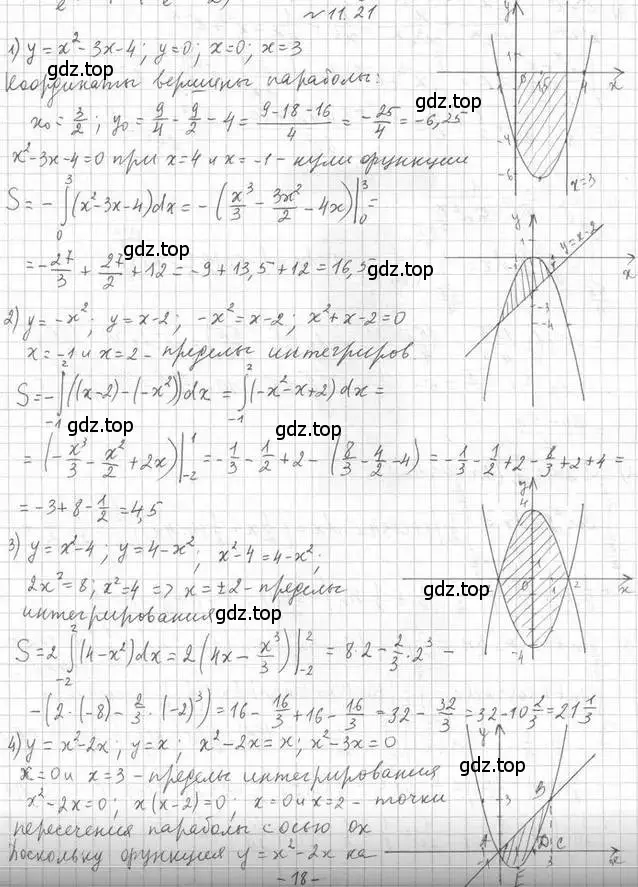 №11.21
1) y = x² - 3x - 4; y = 0; x = 0; x = 3
Координаты вершины параболы:
x₀ = 3/2; y₀ = 9/4 - 9/2 - 4 = (9 - 18 - 16)/4 = -25/4 = -6,25
x² - 3x - 4 = 0 при x = 4 и x = -1 - нули функции
S = - ∫₀³ (x² - 3x - 4) dx = - (x³/3 - 3x²/2 - 4x) |₀³ =
= -27/3 + 27/2 + 12 = -9 + 13,5 + 12 = 16,5
2) y = -x²; y = x - 2; -x² = x - 2; x² + x - 2 = 0
x = -1 и x = 2 - пределы интегриров
S = - ∫₋₁² ((x - 2) - (-x²)) dx = ∫₋₁² (-x² - x + 2) dx =
= (-x³/3 - x²/2 + 2x) |₋₂¹ = -1/3 - 1/2 + 2 - (8/3 - 4/2 - 4) = -1/3 - 1/2 + 2 - 8/3 + 2 + 4 =
= -3 + 8 - 1/2 = 4,5
3) y = x² - 4; y = 4 - x²; x² - 4 = 4 - x²;
2x² = 8; x² = 4 => x = ±2 - пределы
интегрирования
S = 2 ∫₋₂² (4 - x²) dx = 2 (4x - x³/3) |₋₂² = 8·2 - 2/3·2³ -
- (2·(-8) - 2/3·(-2)³) = 16 - 16/3 + 16 - 16/3 = 32 - 32/3 = 32 - 10 2/3 = 21 1/3
4) y = x² - 2x; y = x; x² - 2x = x; x² - 3x = 0
x = 0 и x = 3 - пределы интегрирования
x² - 2x = 0; x(x - 2) = 0; x = 0 и x = 2 - точки
пересечения параболы с осью ox
Поскольку функция y = x² - 2x на
- 18 -
gdz.top
gdz.top
gdz.top
gdz.top
gdz.top
gdz.top
gdz.top
gdz.top
gdz.top
y
1
0
1,5
4
x
-1
-4
-6
x = 3
y
1
y = x - 2
-1
x
-4
y
4
0
1
2
x
-4
y
3
B
A
D
C
-1
3
x
E